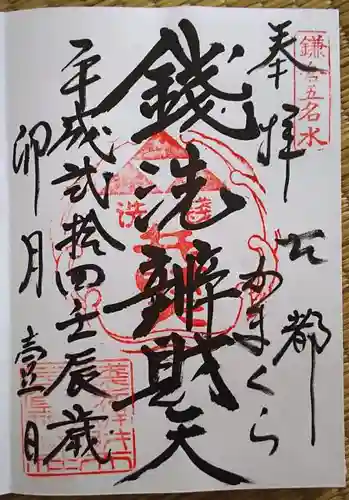 鎌倉五名水
奉拝 古都
かまくら
銭洗辨財天
平成弐拾四壬辰歳
卯月壹日
銭洗